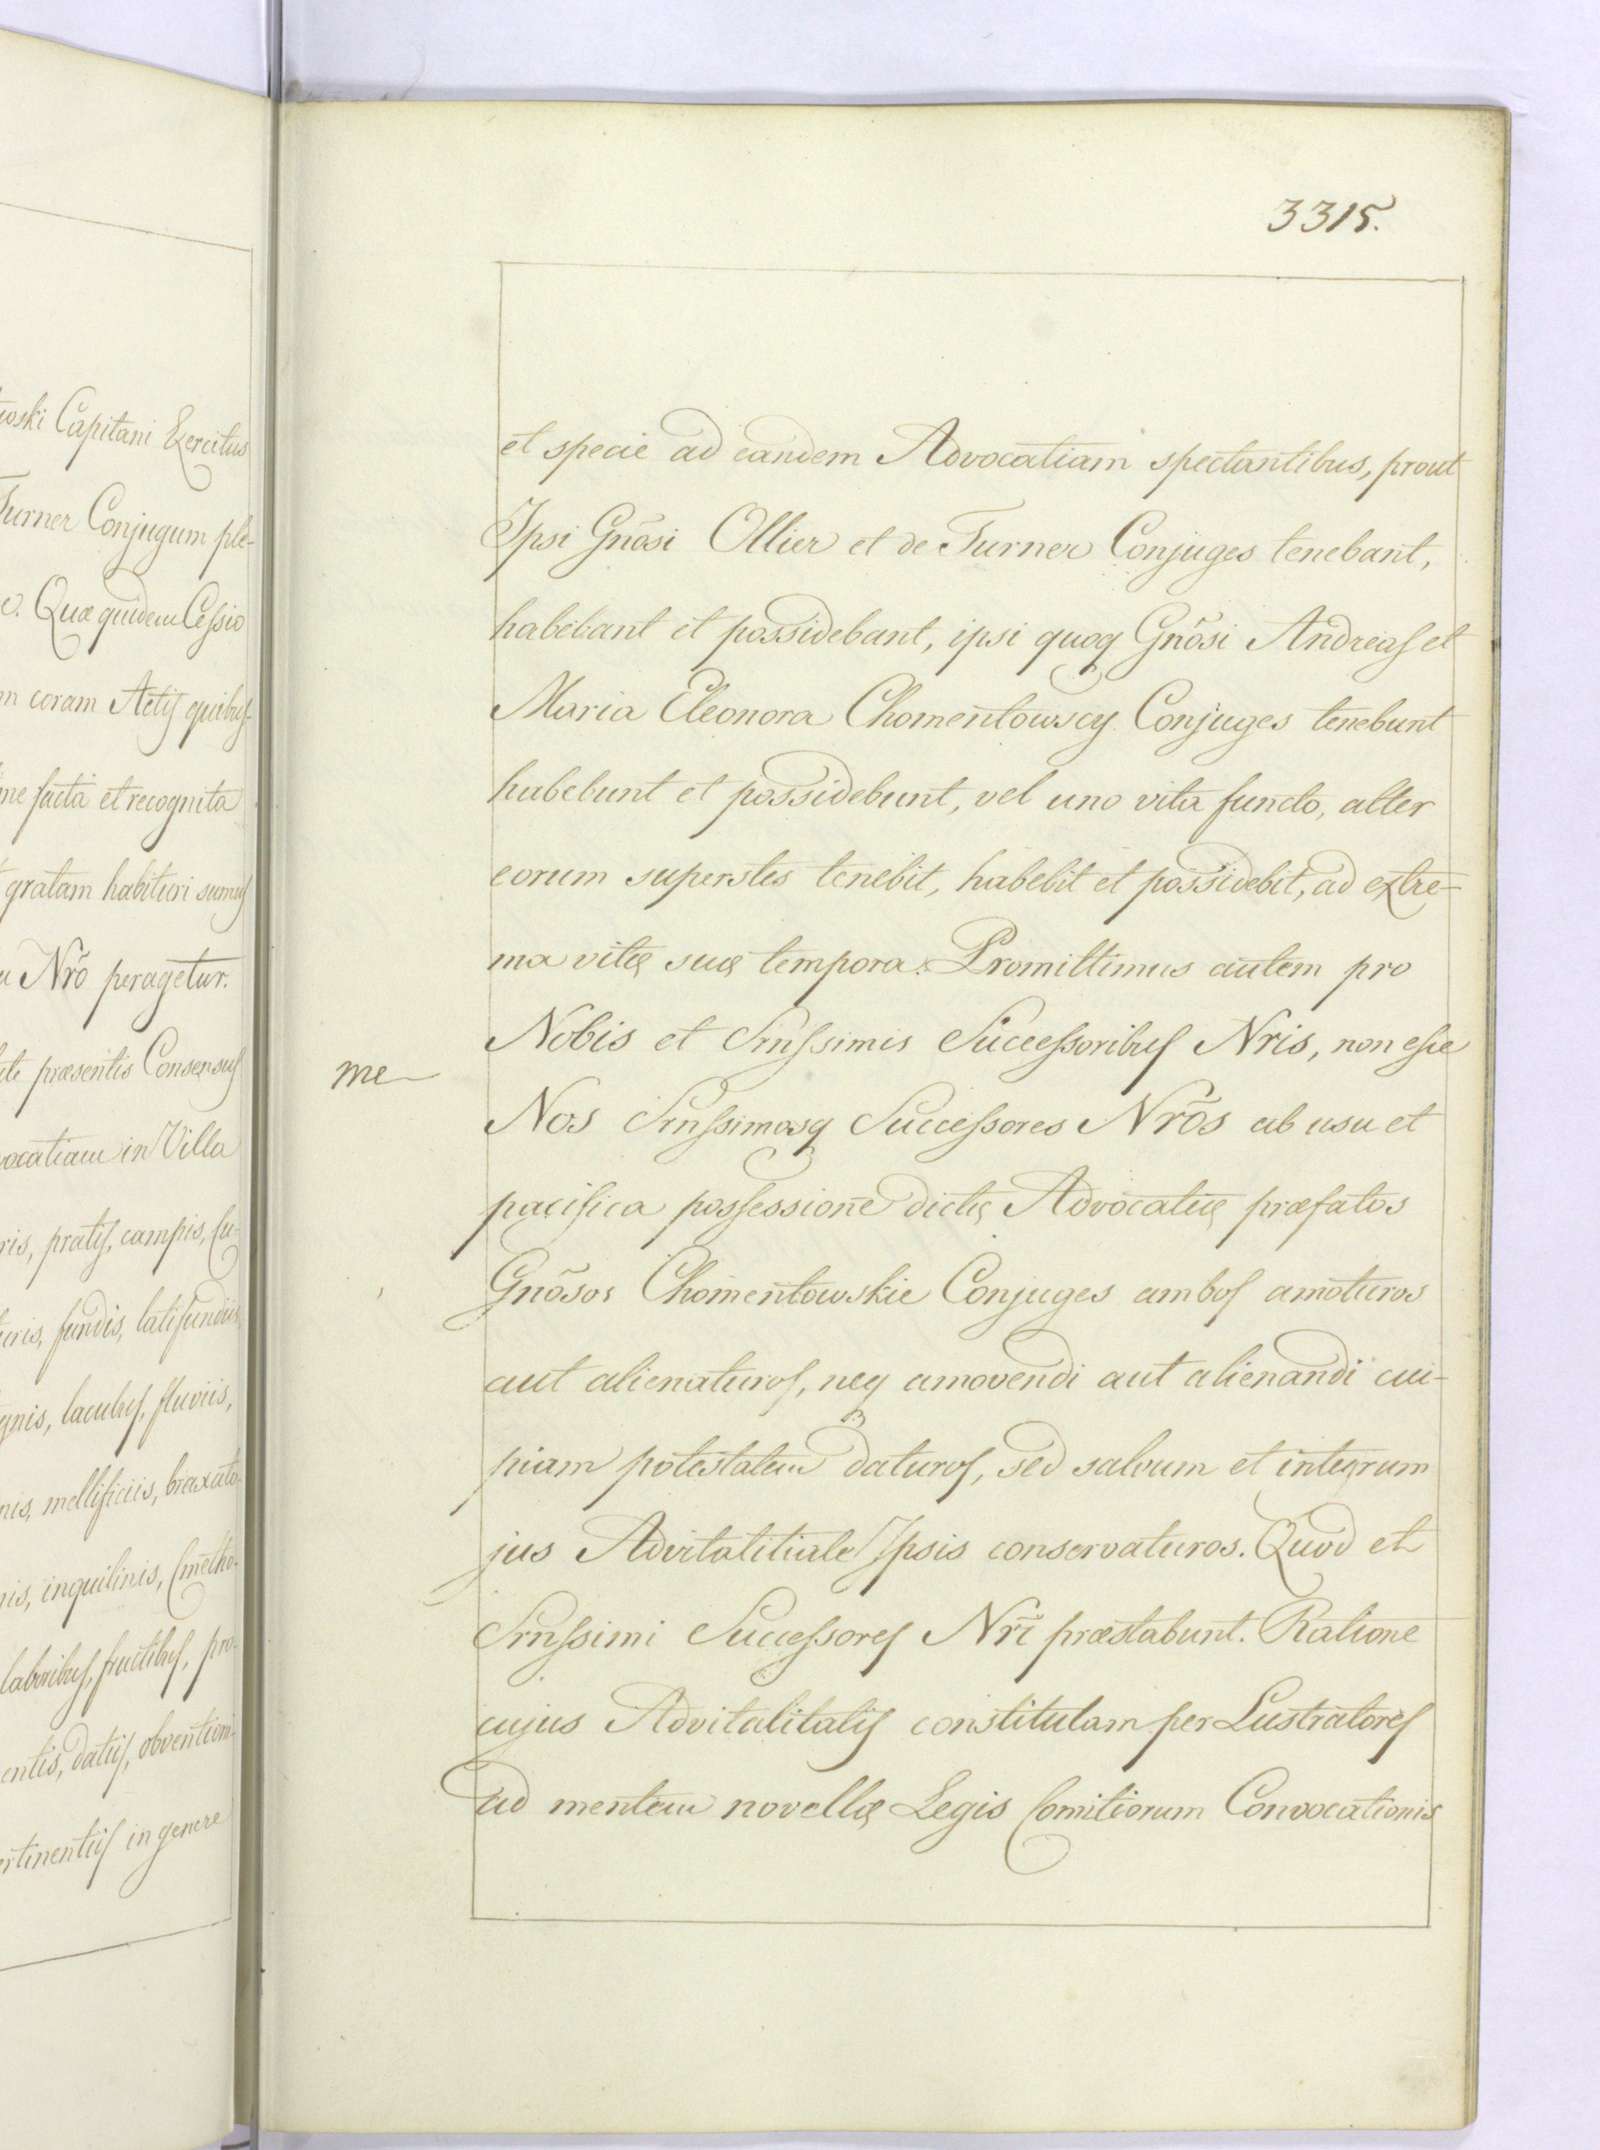 woski Capitani Exercitus
Turner Conjugum ple-
o. Quæ quidem Cessio
m coram Actis quibus-
me facta et recognita
gratam habituri sumus
u Nrõ peragetur.
præsentis Consensus
vocatiam in Villa
ris, pratis, campis, Cu-
turis, fundis, latifundiis,
gnis, lacubus, fluviis,
nis, mellificiis, braxato-
nis, inquilinis, Cmetho-
laboribus, fructibus, pro-
entis, datiis, obvention-
ertinentiis in genere
3315.
et specie ad eandem Advocatiam spectantibus, prout
Ipsi Gnõsi Ollier et de Turner Conjuges tenebant,
habebant et possidebant, ipsi quoq Gnõsi Andreas et
Maria Eleonora Chomentowscy Conjuges tenebunt
habebunt et possidebunt, vel uno vita functo, alter
eorum superstes tenebit, habebit et possidebit, ad extre-
ma vitę suę tempora. Promittimus autem pro
Nobis et Srnssimis Successoribus Nris, non esse
me
Nos Srnssimosq Successores Nrõs ab usu et
pacifica possessione dictę Advocatię præfatos
Gnõsos Chomentowskie Conjuges ambos amoturos
aut alienaturos, neq amovendi aut alienandi cui-
piam potestatem daturos, sed salvum et integrum
jus Advitalitiale Ipsis conservaturos. Quod et
Srnssimi Successores Nrĩ præstabunt. Ratione
cujus Advitalitatis constitutam per Lustratores
ad mentem novellę Legis Comitiorum Convocationis